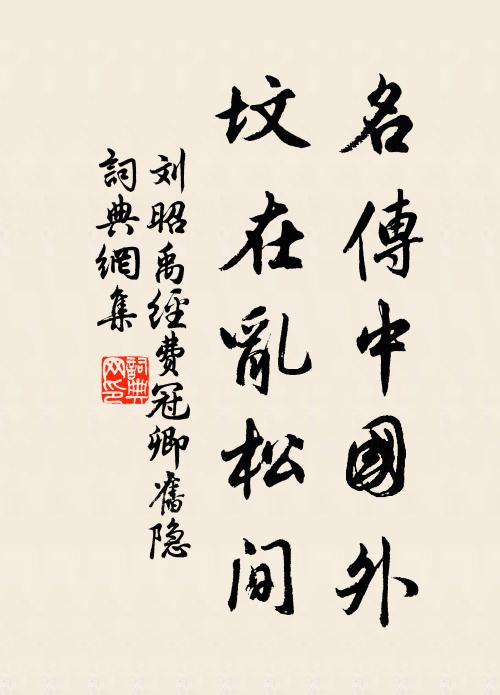 名傳中國外
坟在亂松间
刘昭禹經費冠卿舊隐
詞典網集
詞典網印